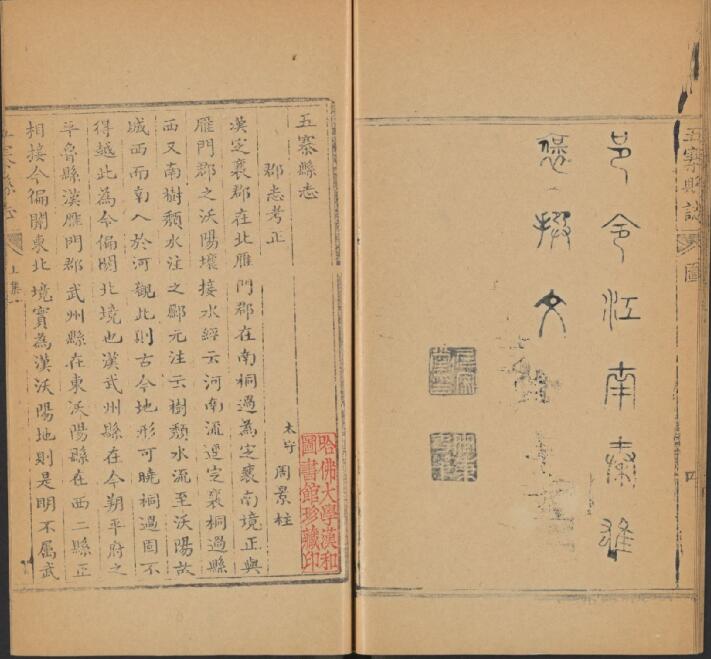 五寨縣誌
圖
四
邑令江南秦雄
褒文
五寨縣志
郡志考正
太守 周景柱
哈佛大學漢和
圖書館珍藏印
漢定襄郡在北雁門郡在南桐過為定襄南境正與
雁門郡之沃陽壤接水經云河南流逕定襄桐過縣
西又南樹頹水注之酈元注云樹頹水流至沃陽故
城西而南入於河觀此則古今地形可曉桐過固不
得越此為今偏關北境也漢武州縣在今朔平府之
平魯縣漢雁門郡武州縣在東沃陽縣在西二縣正
相接今偏關東北境實為漢沃陽地則是明不屬武
五寨縣志
上集